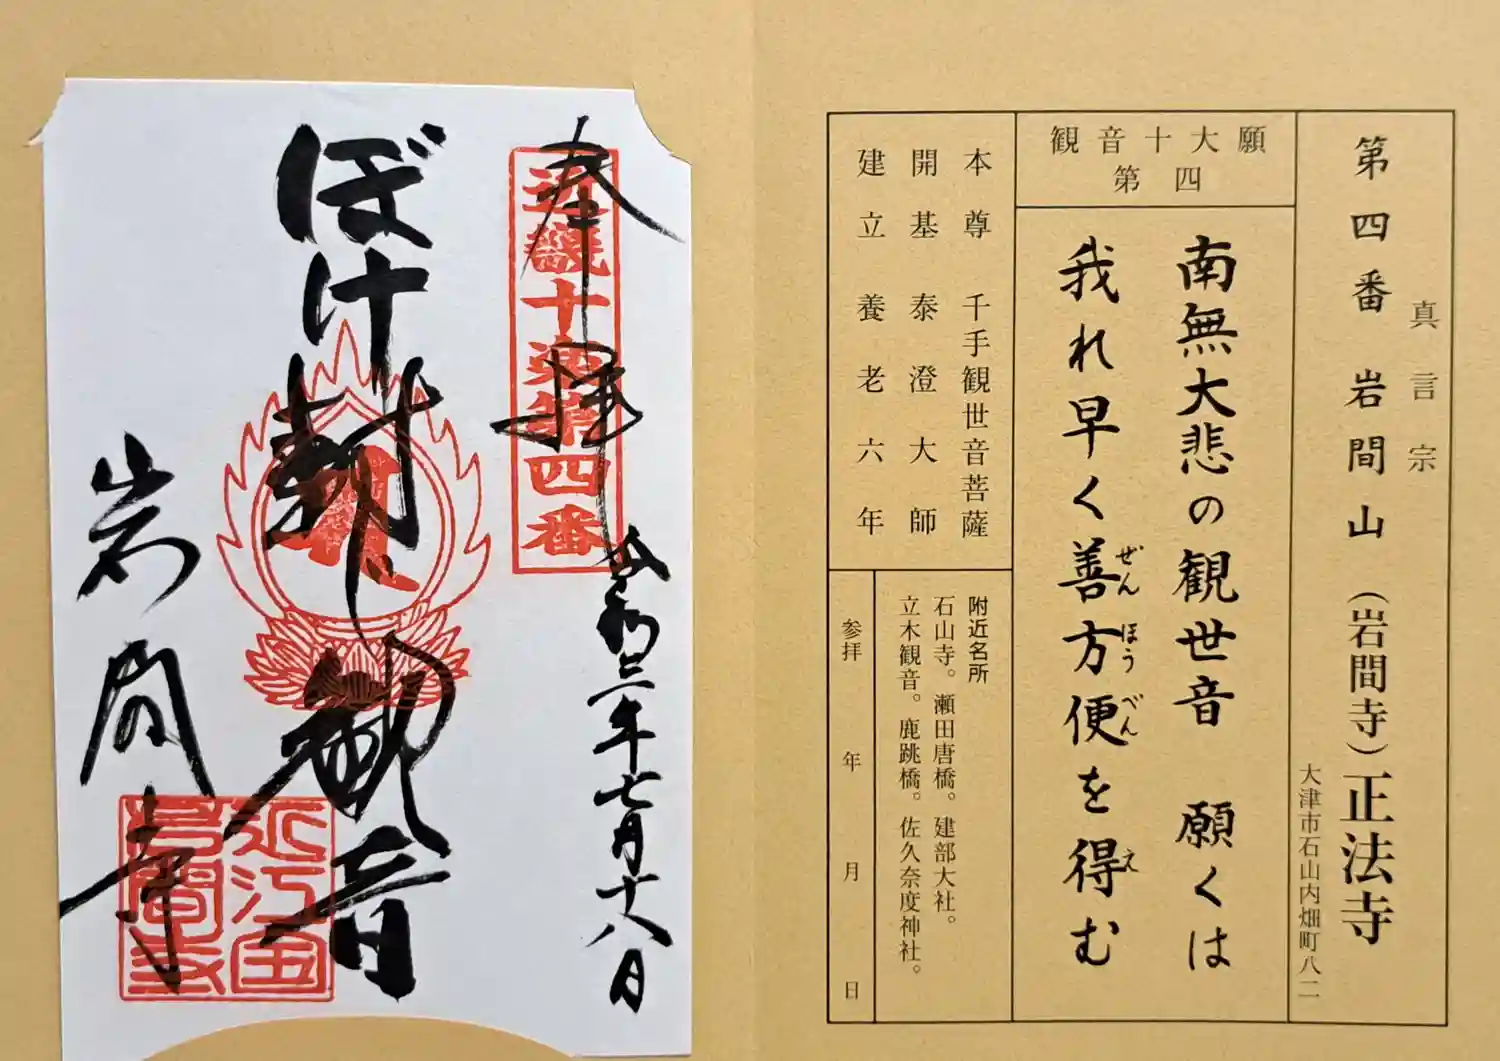 真言宗
第四番 岩間山(岩間寺)正法寺
大津市石山内畑町八二
観音十大願
第四
南無大悲の観世音 願くは
我れ早く善方便を得む
ぜんほうべん え
本尊 千手観世音菩薩
開基 泰澄大師
建立 養老六年
附近名所
石山寺。瀬田唐橋。建部大社。
立木観音。鹿跳橋。佐久奈度神社。
参拝 年 月 日
奉拝
令和三年七月十八日
第四番
ぼけ封じ観音
岩間寺
近江国
岩間寺